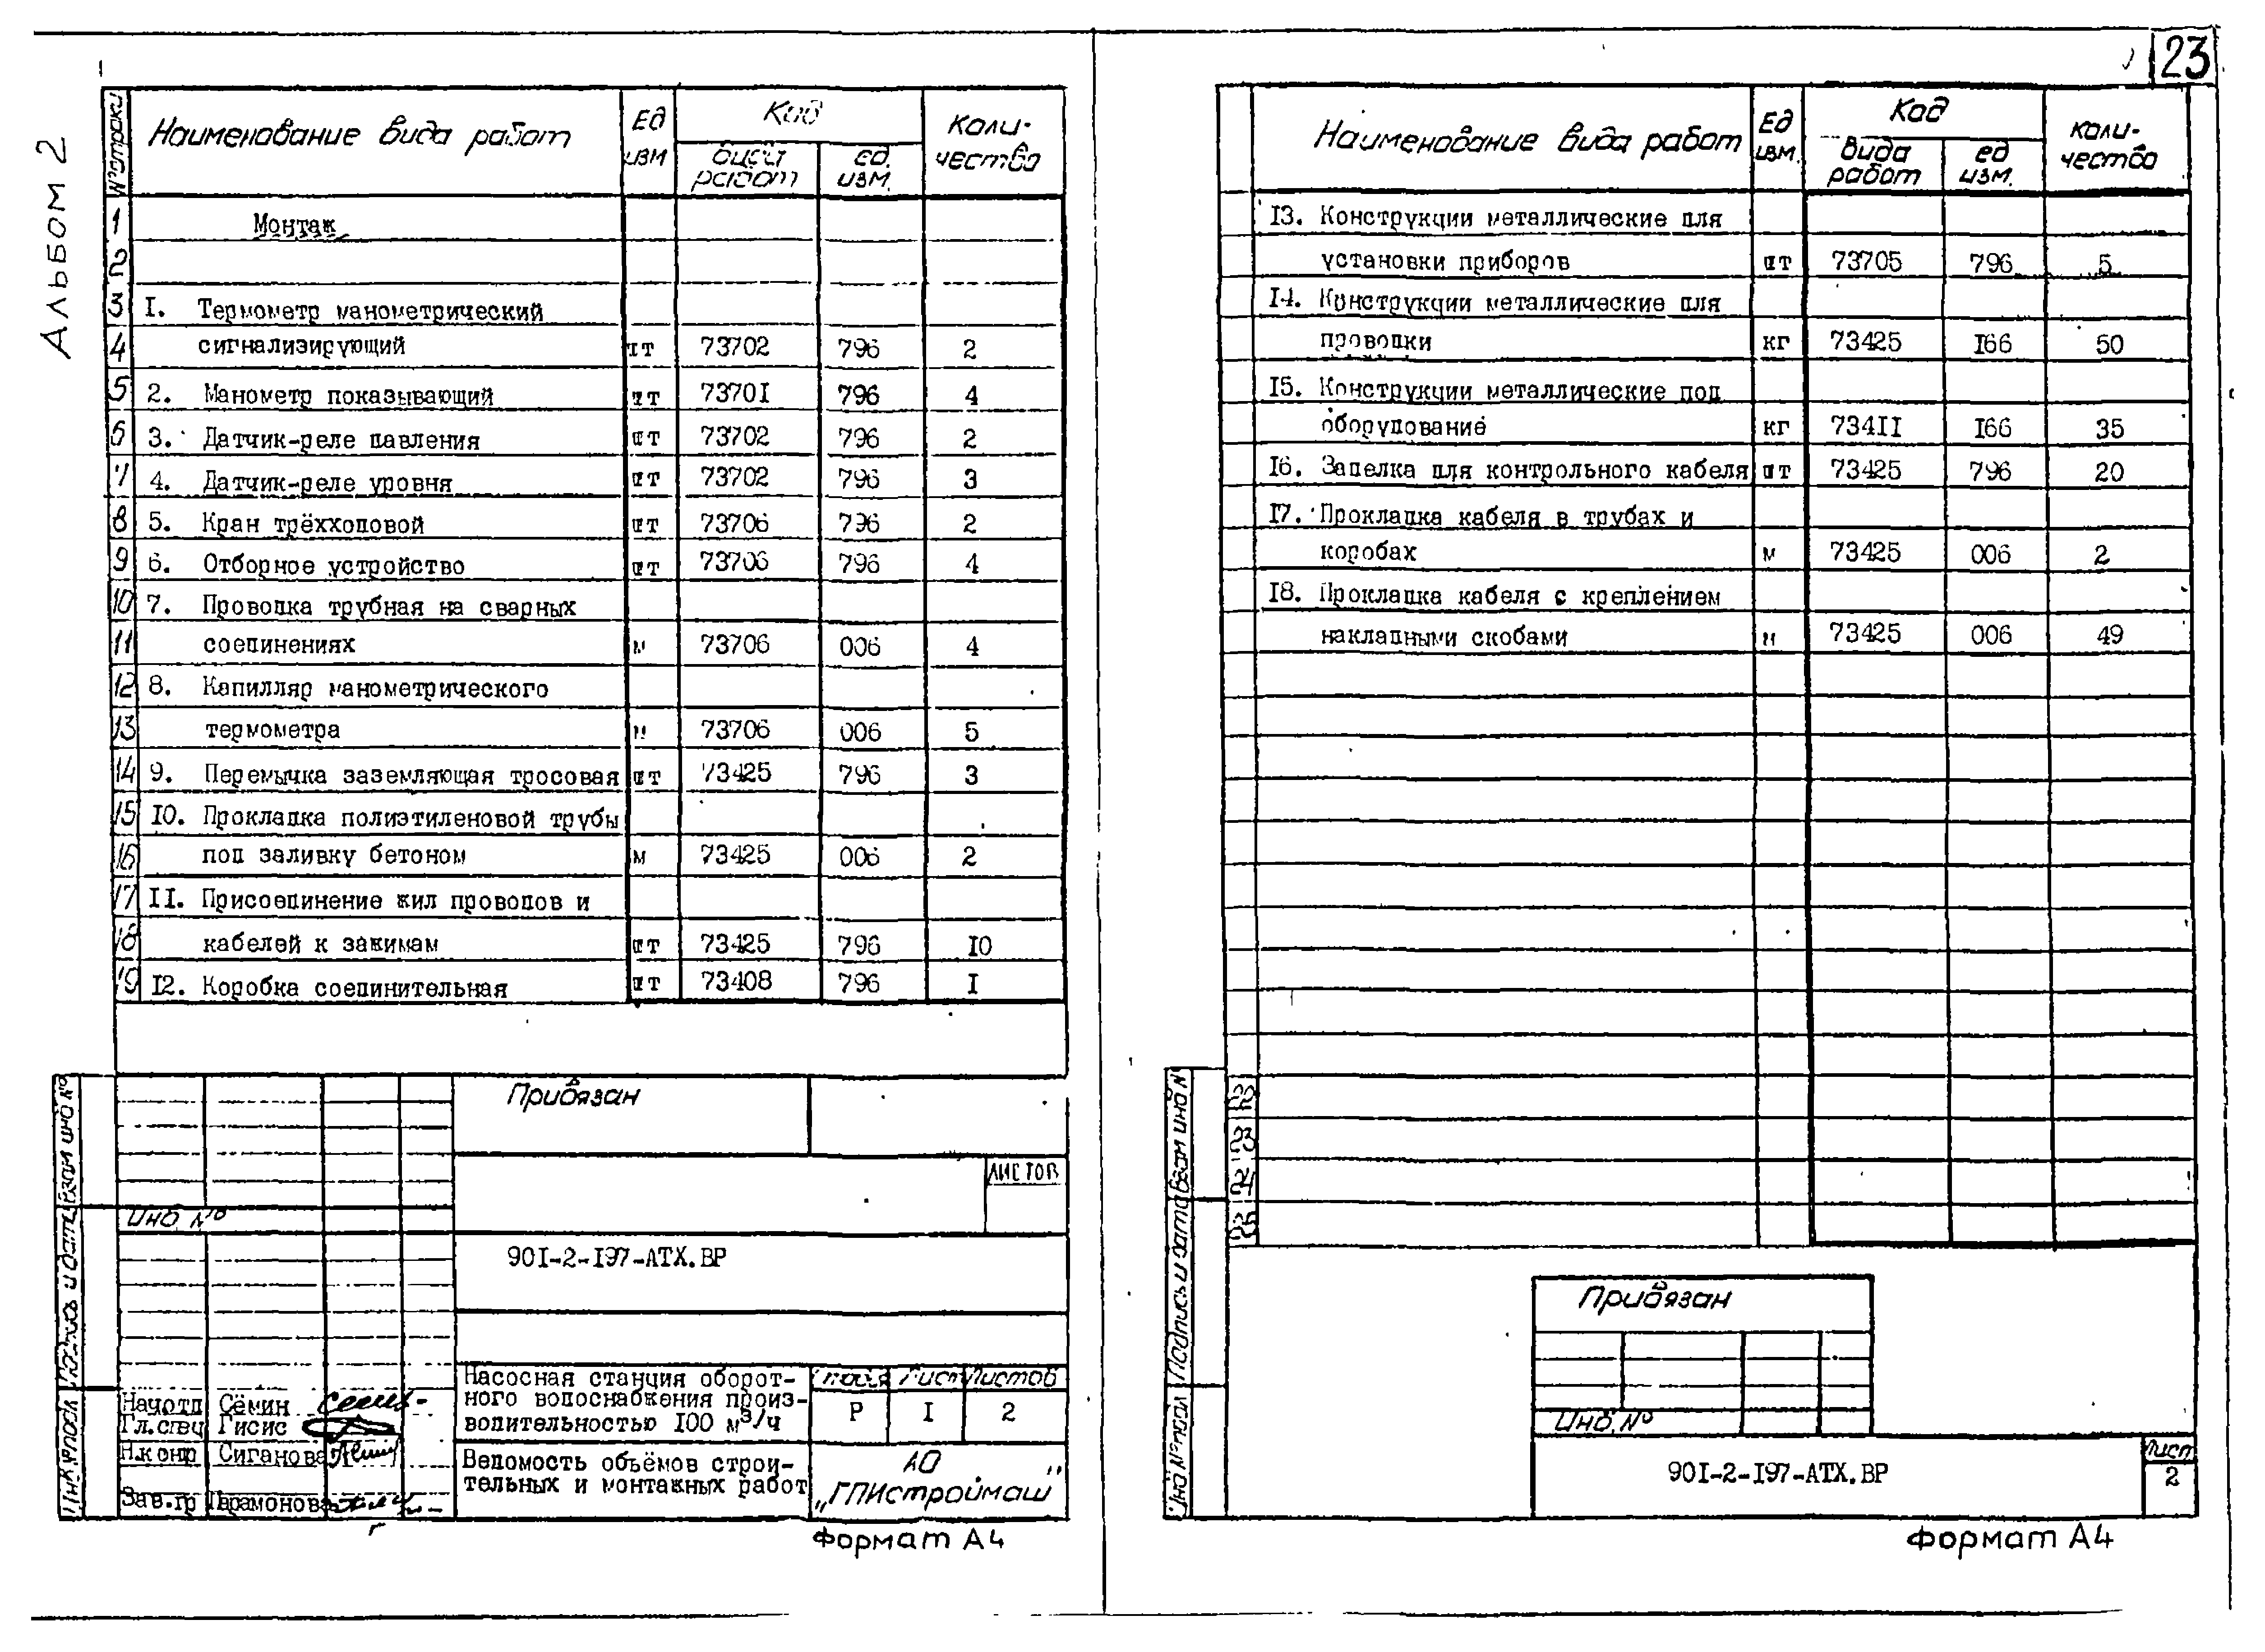 23
Альбом 2
№ строки Наименование вида работ Ед изм Код вида работ ед. изм. Коли-чество
1 Монтаж
2
3 1. Термометр манометрический
4 сигнализирующий шт 73702 796 2
5 2. Манометр показывающий шт 73701 796 4
6 3. Датчик-реле давления шт 73702 796 2
7 4. Датчик-реле уровня шт 73702 796 3
8 5. Кран трёхходовой шт 73706 796 2
9 6. Отборное устройство шт 73706 796 4
10 7. Проводка трубная на сварных
11 соединениях м 73706 006 4
12 8. Капилляр манометрического
13 термометра м 73706 006 5
14 9. Перемычка заземляющая тросовая шт 73425 796 3
15 10. Прокладка полиэтиленовой трубы
16 под заливку бетоном м 73425 006 2
17 11. Присоединение жил проводов и
18 кабелей к зажимам шт 73425 796 10
19 12. Коробка соединительная шт 73408 796 1
Привязан
ЛИСТОВ
Инв. №
901-2-197-АТХ.ВР
Насосная станция оборот-
ного водоснабжения произ-
водительностью 100 м³/ч
Стадия Лист Листов
Р 1 2
Нач.отд Сёмин
Гл.спец Гисис
Н.контр Сиганова
Зав.гр Парамонова
Ведомость объёмов строи-
тельных и монтажных работ
АО
„ГПИстроймаш"
Формат А4
Наименование вида работ Ед изм. Код вида работ ед изм. Коли-чество
13. Конструкции металлические для
установки приборов шт 73705 796 5
14. Конструкции металлические для
проводки кг 73425 166 50
15. Конструкции металлические под
оборудование кг 73411 166 35
16. Заделка для контрольного кабеля шт 73425 796 20
17. Прокладка кабеля в трубах и
коробах м 73425 006 2
18. Прокладка кабеля с креплением
накладными скобами м 73425 006 49
22
23
24
25
Инв № подл Подпись и дата Взам инв №
Привязан
Инв. №
901-2-197-АТХ.ВР
Лист
2
Формат А4